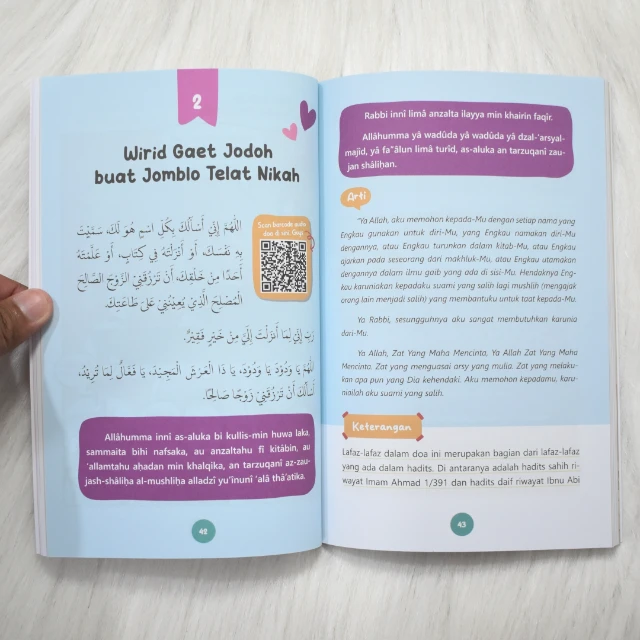 2
Wirid Gaet Jodoh
buat Jomblo Telat Nikah
اَللّٰهُمَّ إِنِّي أَسْأَلُكَ بِكُلِّ اسْمٍ هُوَ لَكَ، سَمَّيْتَ
بِهِ نَفْسَكَ، أَوْ أَنْزَلْتَهُ فِي كِتَابٍ، أَوْ عَلَّمْتَهُ
أَحَدًا مِنْ خَلْقِكَ، أَنْ تَرْزُقَنِيْ الزَّوْجَ الصَّالِحَ
الْمُصْلِحَ الَّذِيْ يُعِيْنُنِيْ عَلَى طَاعَتِكَ.
Scan barcode
doa di sini,
رَبِّ إِنِّيْ لِمَا أَنْزَلْتَ إِلَيَّ مِنْ خَيْرٍ فَقِيْرٌ.
اَللّٰهُمَّ يَا وَدُوْدُ يَا وَدُوْدُ، يَا ذَا الْعَرْشِ الْمَجِيْدَ، يَا فَعَّالٌ لِمَا تُرِيْدُ،
أَسْأَلُكَ أَنْ تَرْزُقَنِيْ زَوْجًا صَالِحًا.
Allâhumma innî as-aluka bi kullis-min huwa laka,
sammaita bihi nafsaka, au anzaltahu fî kitâbin, au
'allamtahu aḥadan min khalqika, an tarzuqanî az-zau-
jash-shâliḥa al-mushliḥa alladzî yu'înunî 'alâ thâ'atika.
42
Rabbi innî limâ anzalta ilayya min khairin faqîr.
Allâhumma yâ wadûda yâ wadûda yâ dzal-'arsyal-
majîd, yâ fa''âlun limâ turîd, as-aluka an tarzuqanî zau-
jan shâliḥan.
Arti
"Ya Allah, aku memohon kepada-Mu dengan setiap nama yang
Engkau gunakan untuk diri-Mu, yang Engkau namakan diri-Mu
dengannya, atau Engkau turunkan dalam kitab-Mu, atau Engkau
ajarkan pada seseorang dari makhluk-Mu, atau Engkau utamakan
dengannya dalam ilmu gaib yang ada di sisi-Mu. Hendaknya Eng-
kau karuniakan kepadaku suami yang salih lagi mushlih (mengajak
orang lain menjadi salih) yang membantuku untuk taat kepada-Mu.
Ya Rabbi, sesungguhnya aku sangat membutuhkan karunia
dari-Mu.
Ya Allah, Zat Yang Maha Mencinta, Ya Allah Zat Yang Maha
Mencinta. Zat yang menguasai arsy yang mulia. Zat yang melaku-
kan apa pun yang Dia kehendaki. Aku memohon kepadamu, karu-
niailah aku suami yang salih.
Keterangan
Lafaz-lafaz dalam doa ini merupakan bagian dari lafaz-lafaz
yang ada dalam hadits. Di antaranya adalah hadits sahih ri-
wayat Imam Ahmad 1/391 dan hadits daif riwayat Ibnu Abi
43